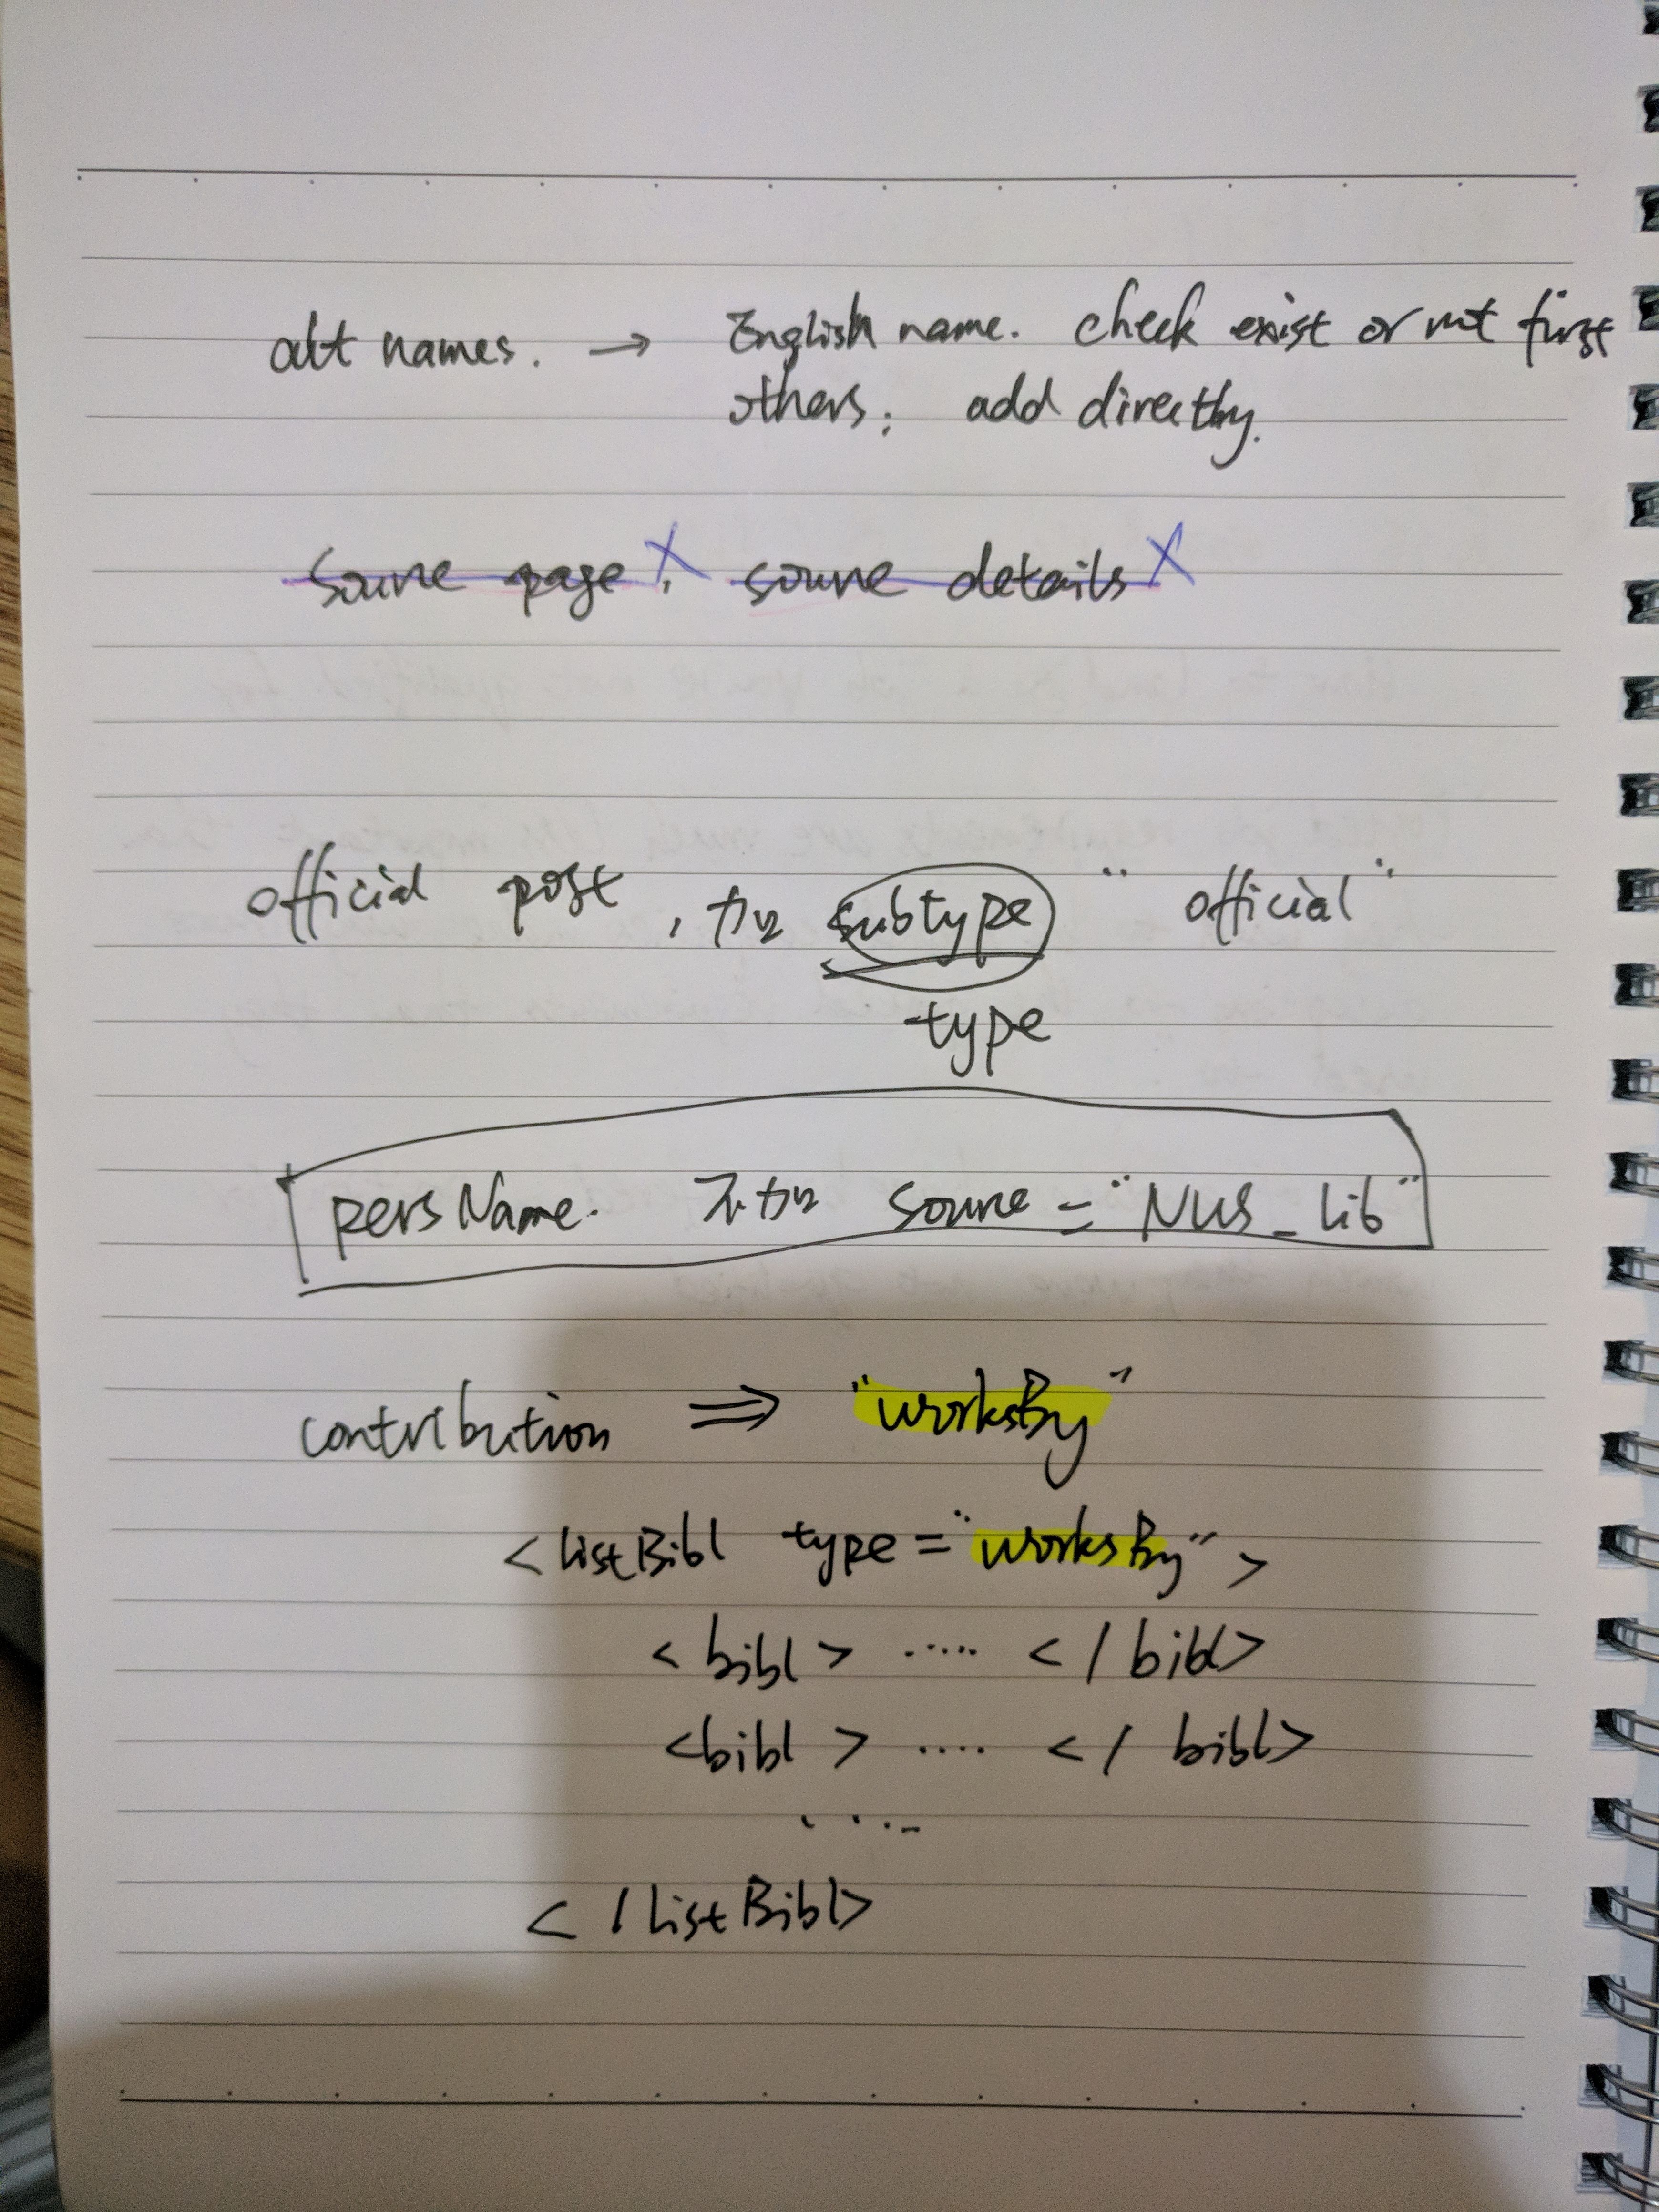 alt names. → English name. check exist or not first
others: add directly.
source page, X source details X
official post, 加 subtype "official"
type
persName. 不加 source = "NUS_lib"
contribution ⇒ "worksBy"
<listBibl type = "worksBy">
<bibl> ..... </bibl>
<bibl> .... </bibl>
....
</listBibl>